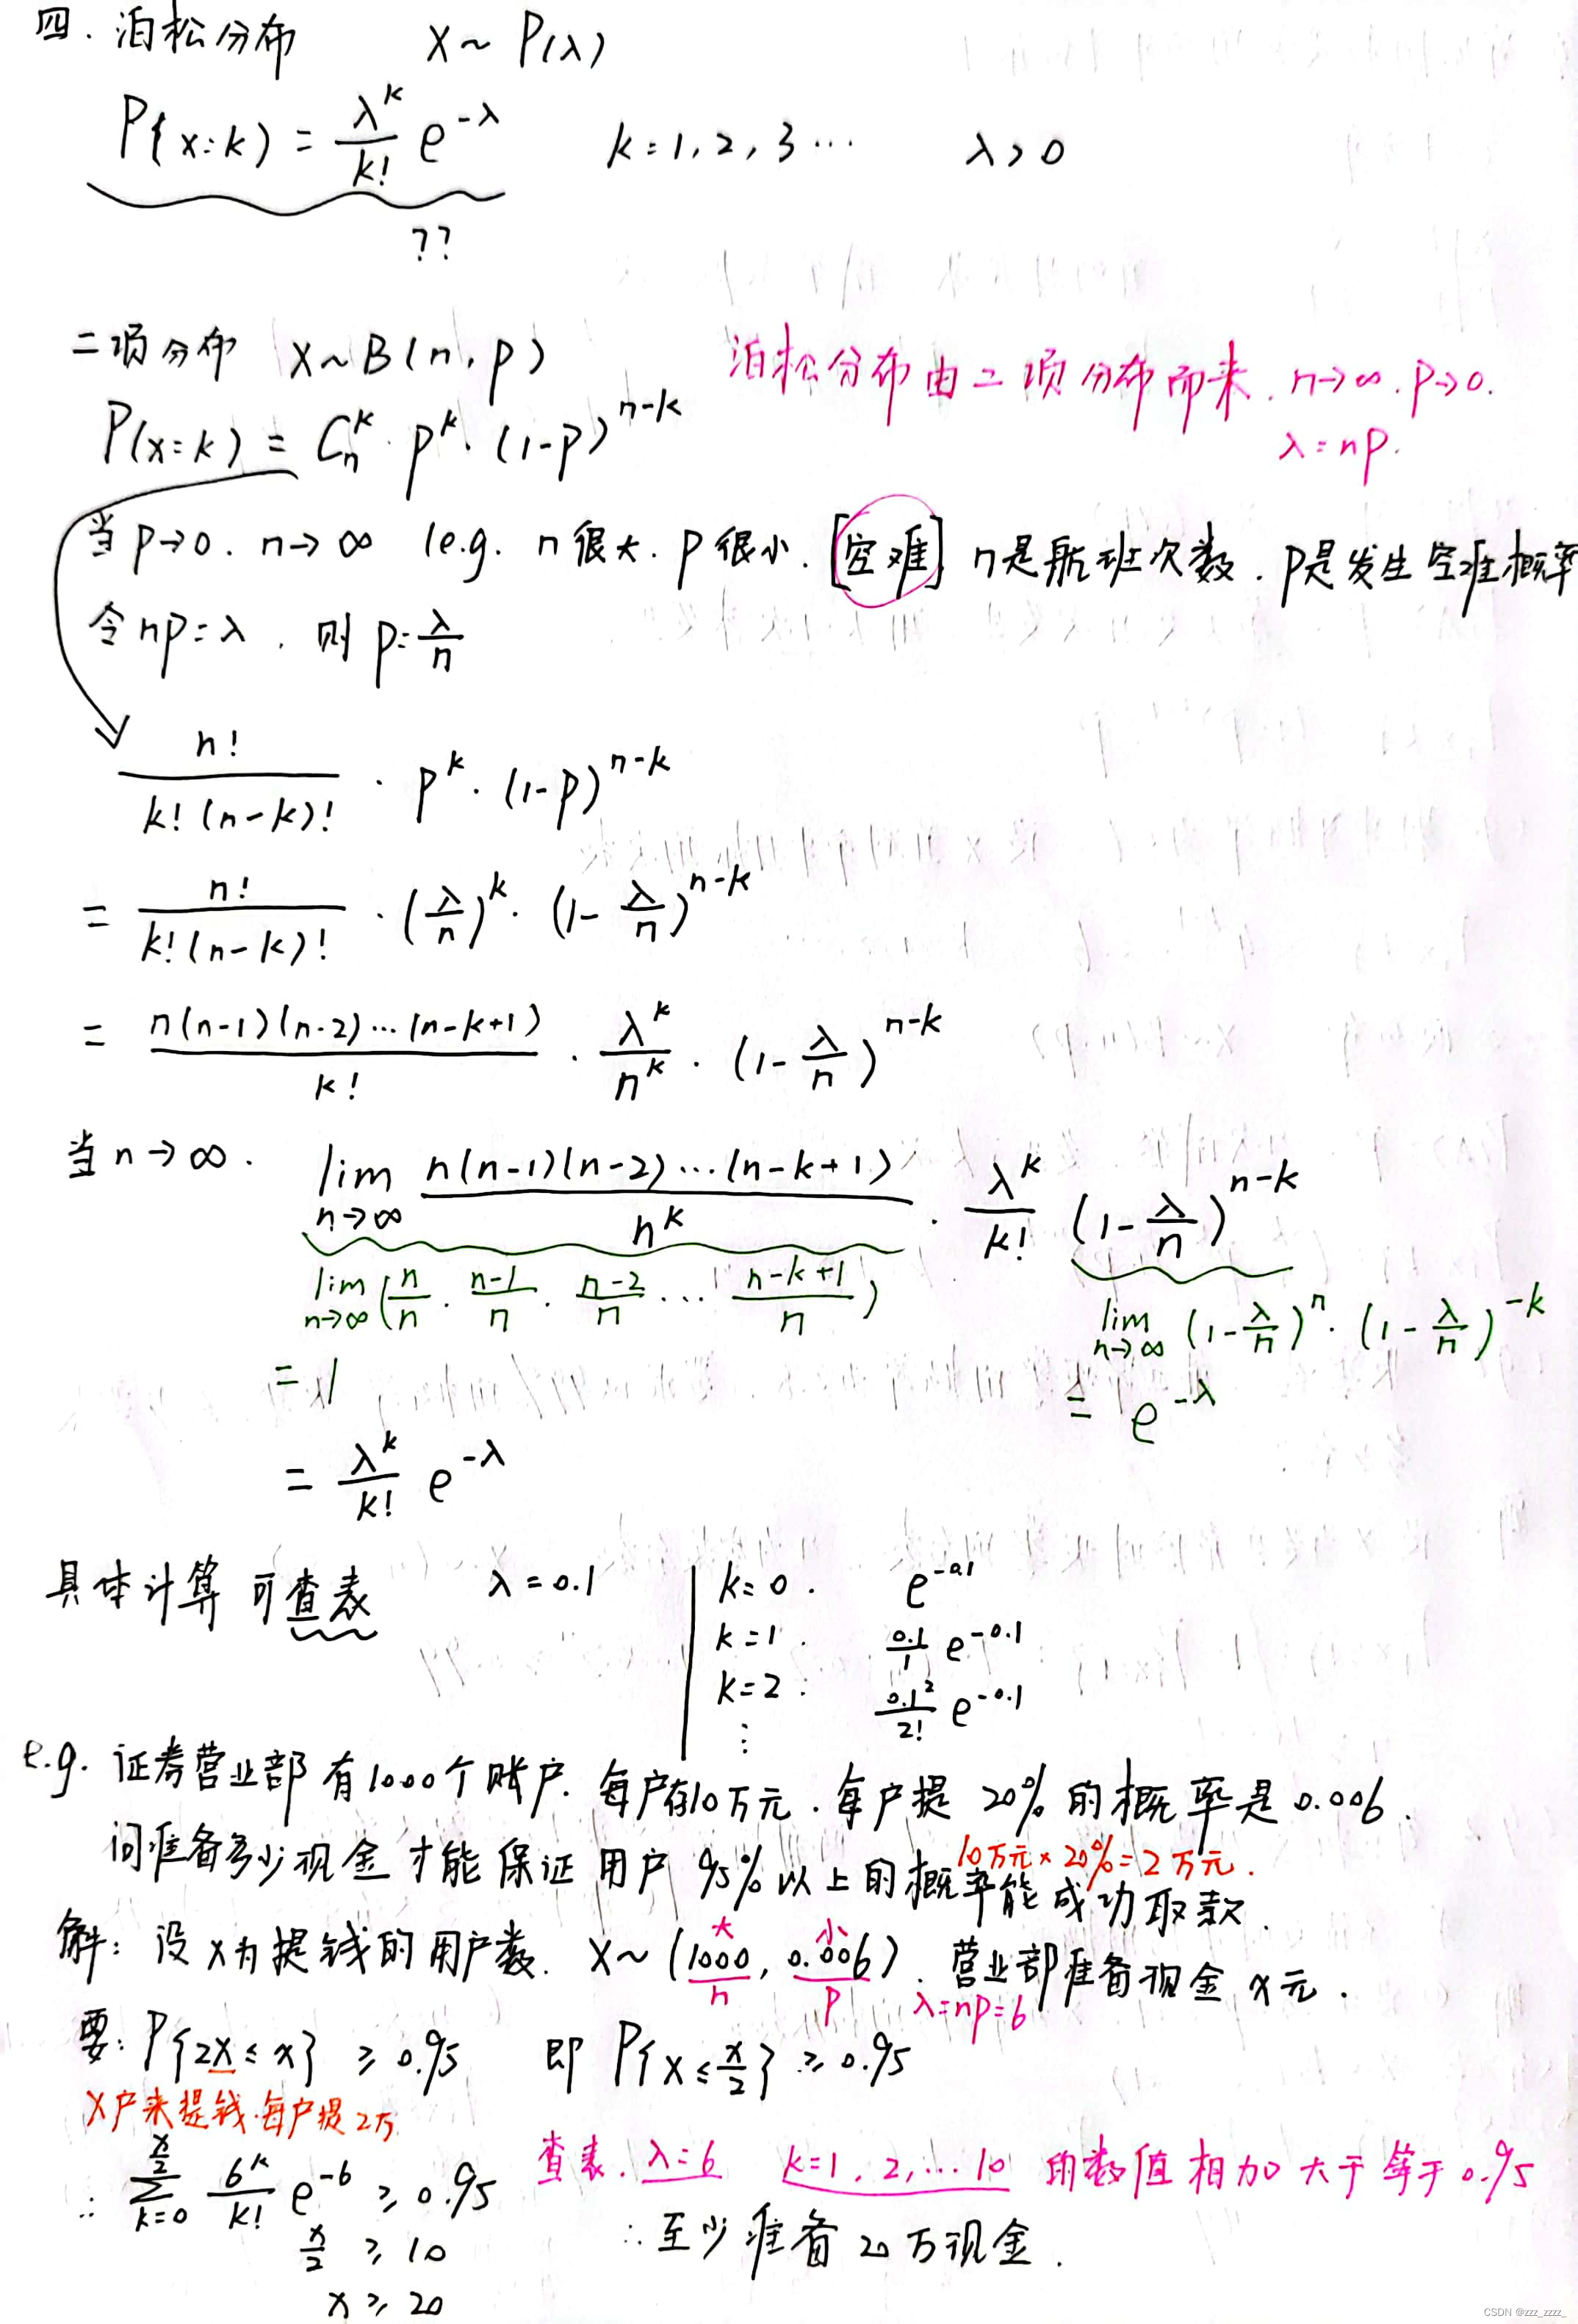 四. 泊松分布 X ~ P(λ)
P{x=k) = λ^k/k! e^(-λ) k=1, 2, 3 ⋯ λ>0
??
二项分布 X~B(n, p)
泊松分布由二项分布而来. n→∞. p→0.
λ=np.
P(x=k) = C_n^k · p^k · (1-p)^(n-k)
当 p→0. n→∞ (e.g. n很大. p很小. [空难] n是航班次数. p是发生空难概率
令 np=λ, 则 p=λ/n
n!/(k!(n-k)!) · p^k · (1-p)^(n-k)
= n!/(k!(n-k)!) · (λ/n)^k · (1-λ/n)^(n-k)
= n(n-1)(n-2)⋯(n-k+1)/k! · λ^k/n^k · (1-λ/n)^(n-k)
当 n→∞. lim n→∞ n(n-1)(n-2)⋯(n-k+1)/n^k · λ^k/k! (1-λ/n)^(n-k)
lim n→∞ (n/n · (n-1)/n · (n-2)/n ⋯ (n-k+1)/n)
= 1
lim n→∞ (1-λ/n)^n · (1-λ/n)^(-k)
= e^(-λ)
= λ^k/k! e^(-λ)
具体计算可查表 λ=0.1 k=0. e^(-0.1)
k=1. 0.1/1 e^(-0.1)
k=2. 0.1²/2! e^(-0.1)
⋮
e.g. 证券营业部有1000个账户. 每户存10万元. 每户提20%的概率是0.006.
10万元×20%=2万元.
问准备多少现金才能保证用户95%以上的概率能成功取款.
解: 设X为提钱的用户数. X~(1000, 0.006). 营业部准备现金x元.
大 小
n p λ=np=6
要: P{2X≤x} ≥0.95 即 P{X≤x/2} ≥0.95
X户来提钱.每户提2万
∴ ∑_(k=0)^(x/2) 6^k/k! e^(-6) ≥0.95
查表. λ=6 k=1, 2, … 10 的数值相加大于等于0.95
x/2 ≥ 10
∴至少准备20万现金.
x ≥ 20
CSDN @zzz_zzzz_